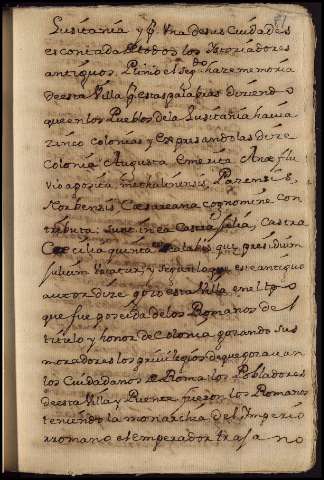 Lusitania y q̃ Vna de sus Ciudades
es contada de todos los Ystoriadores
antiguos. Plinio el seg.do haze memoria
de esta Villa q̃ estas palabras diziendo
que en los Pueblos de la Lusitania havia
zinco colonias y Expresandolas dize
Colonia Augusta Emerita Anæ flu
vio aposita, methalinensis, Pazensis,
Norbensis Cæsareana cognomine con
tributa; sunt in ea Castra Julia, Castra
Cæcilia quinta est Scalabis que presidium
Julium vocatur, y segun lo que este antiguo
autor dize gozo esta Villa en el tpo
que fue poseida de los Romanos de l
titulo y honor de Colonia gozando sus
moradores los privilegios de que gozauan
los Ciudadanos de Roma los Pobladores
de esta Villa y Puente fueron los Romanos
teniendo la monarchia del Imperio
rromano el emperador trajano